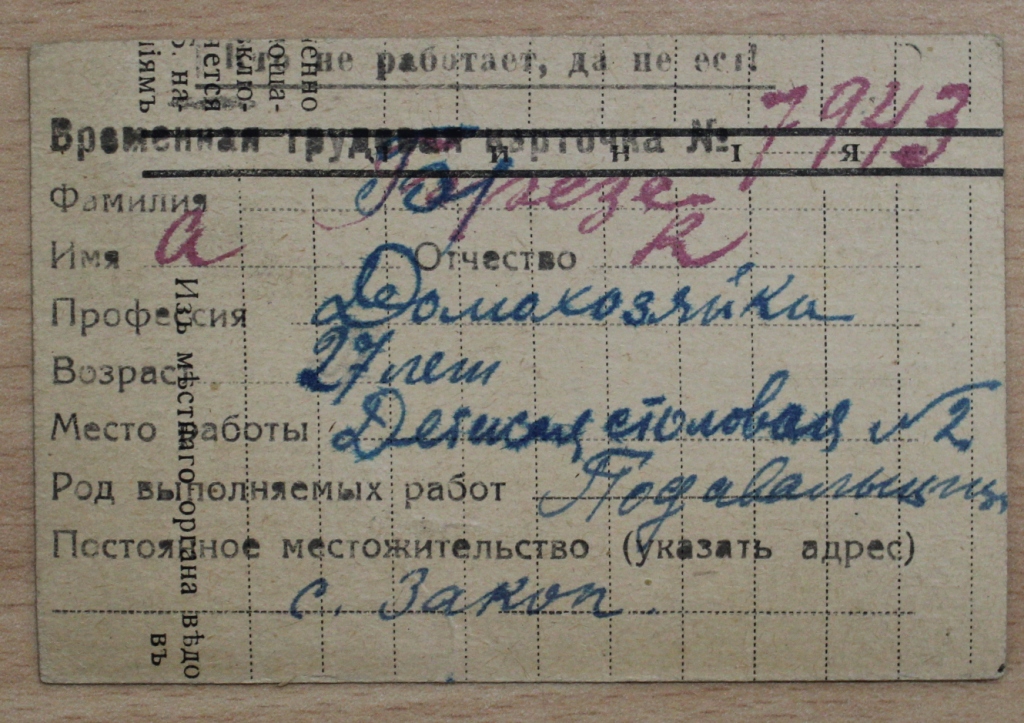 Кто не работает, да не ест!
Временная трудовая карточка № 7943
Фамилия Березе
Имя А Отчество К
Профессия Домохозяйка
Возраст 27 лет
Место работы Детская столовая №2
Род выполняемых работ Подавальщица
Постоянное местожительство (указать адрес)
с. Закоп.
и н і я
Изъ мѣстнаго органа вѣдо
въ
енно
юща-
клю-
нется
. на-
іямъ